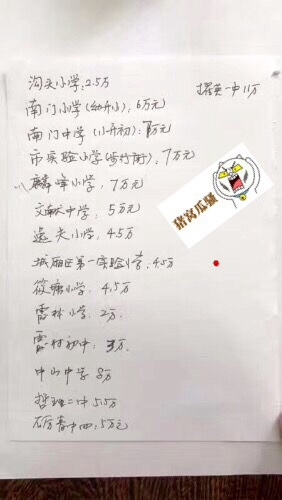 沟头小学:2.5万
擢英一中11万
南门小学(幼升小):6万元
南门中学(小升初):7万元
市实验小学(步行街):7万元
麟峰小学,7万元
文献中学,5万元
逸夫小学,4.5万
城厢区第一实验小学:4.5万
筱塘小学,4.5万
霞林小学:2万
霞林初中:3万
中山中学8万
哲理二中5.5万
砺青中学:5万元
猪窝瓜骚